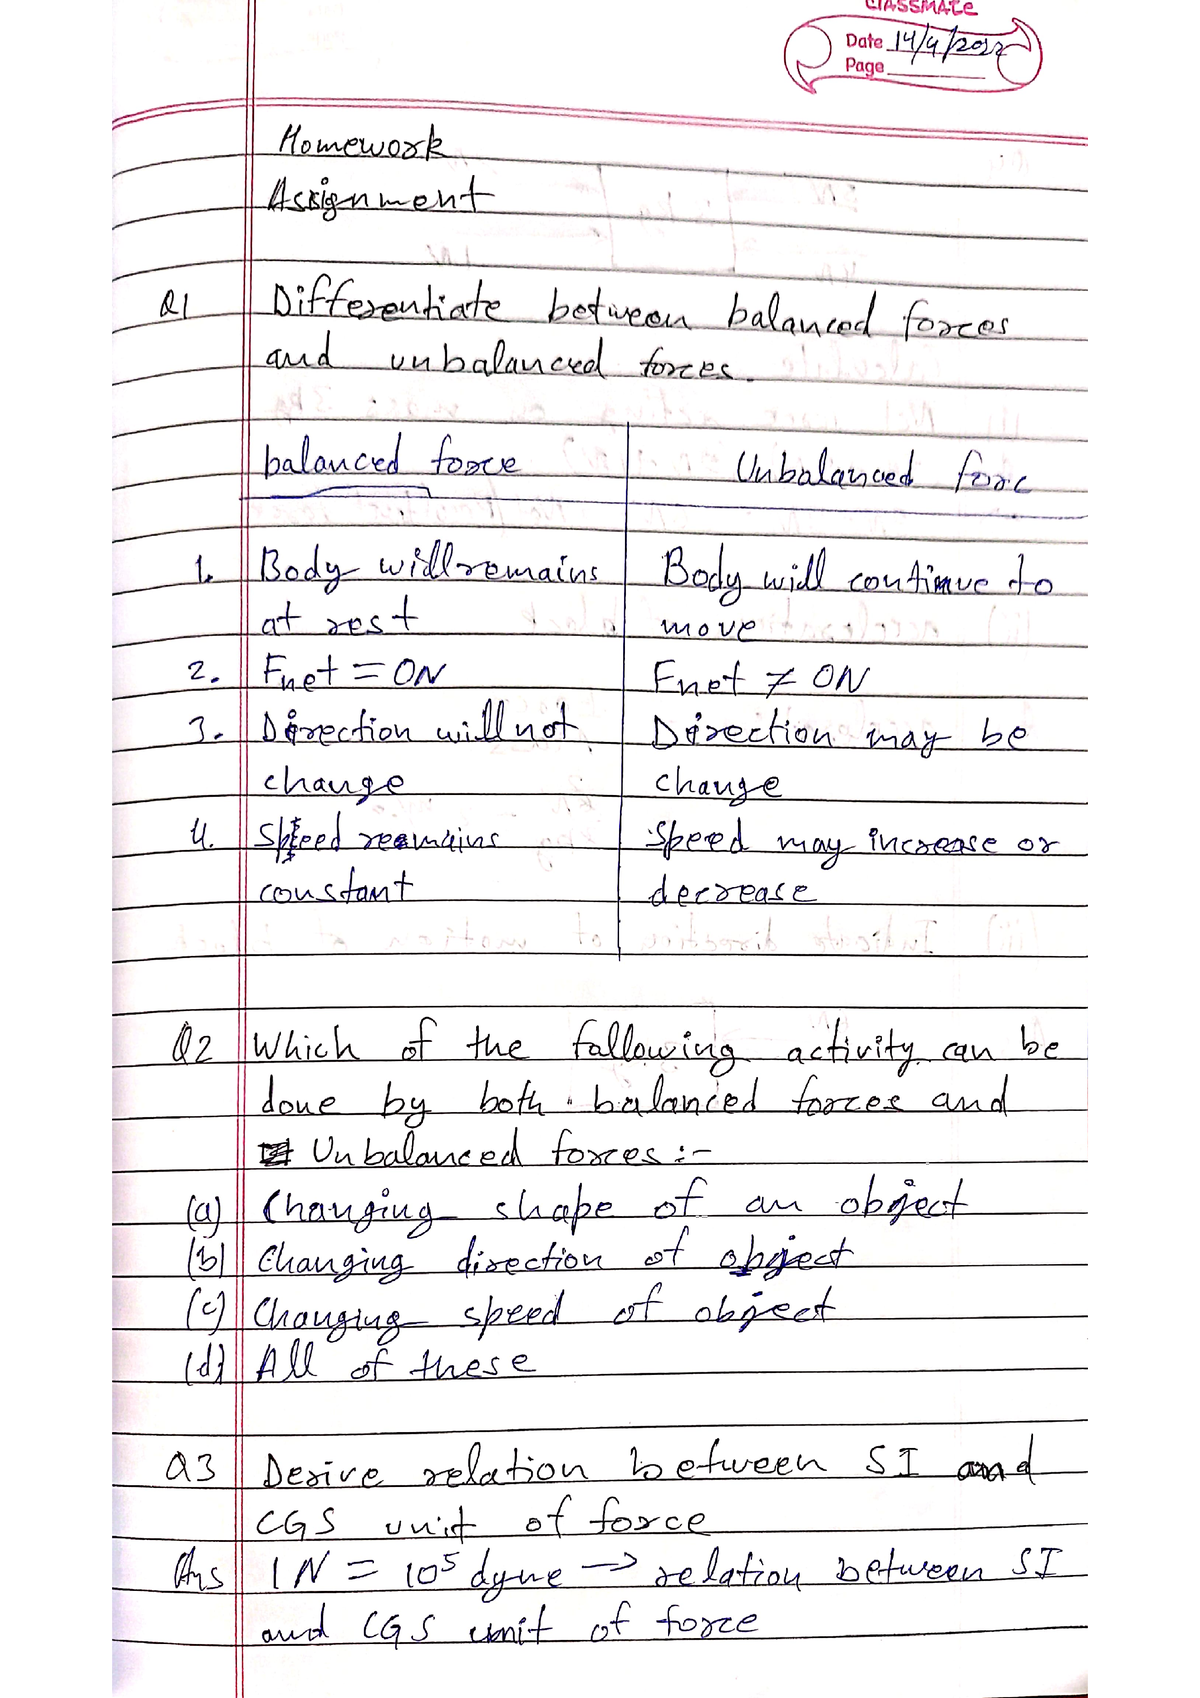 CLASSMATE
Date 14/4/2022
Page
Homework
Assignment
Q1 Differentiate between balanced forces
and unbalanced forces.
balanced force Unbalanced forc
1. Body will remains Body will continue to
at rest move
2. Fnet = 0N Fnet ≠ 0N
3. Direction will not Direction may be
change change
4. Speed remains Speed may increase or
constant decrease
Q2 Which of the following activity can be
done by both balanced forces and
Unbalanced forces :-
(a) Changing shape of an object
(b) Changing direction of object
(c) Changing speed of object
(d) All of these
Q3 Derive relation between SI and
CGS unit of force
Ans 1 N = 10⁵ dyne → relation between SI
and CGS unit of force